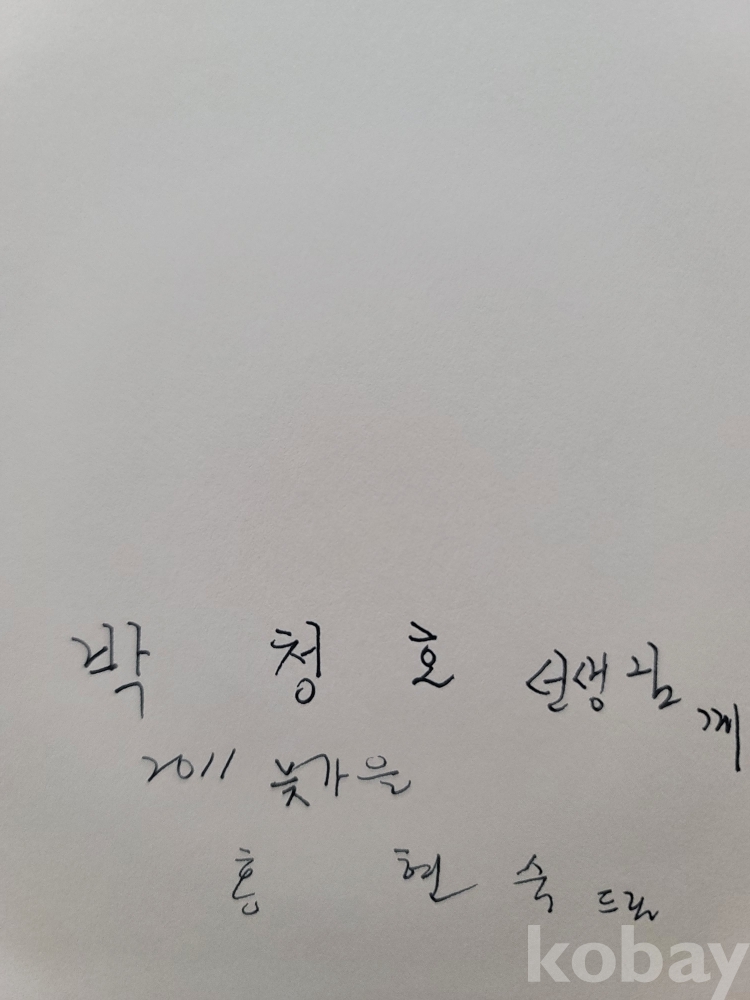 박 청 호 선생님께
2011 늦가을
홍 현 숙 드림
kobay